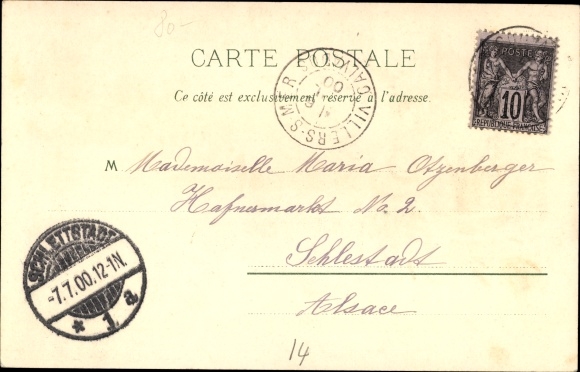 80-
CARTE POSTALE
Ce côté est exclusivement réservé à l'adresse.
POSTE
10
REPUBLIQUE FRANCAISE
VILLERS-S-MER
CALVADOS
00
M Mademoiselle Maria Otzenberger
Hafnermarkt No. 2.
Schlestadt
Alsace
SCHLETTSTADT
-7.7.00.12-1N.
* 1 a
14